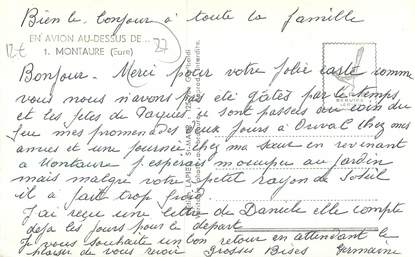 Bien le bonjour à toute la famille
EN AVION AU-DESSUS DE...
1. MONTAURE (Eure)
12€
27
Bonjour - Merci pour votre jolie carte comme
vous nous n'avons pas été gâtés par le temps
et les fêtes de Paques se sont passées au coin du
feu mes promenades deux jours à Orival chez mes
amies et une journée chez ma sœur en revenant
à Montaure j'esperais m'occuper au jardin
mais malgré votre petit rayon de soleil
il à fait trop froid.
J'ai reçu une lettre de Daniele elle compte
déjà les jours pour le départ
Je vous souhaite un bon retour en attendant le
plaisir de vous revoir Grosses Bises Germaine